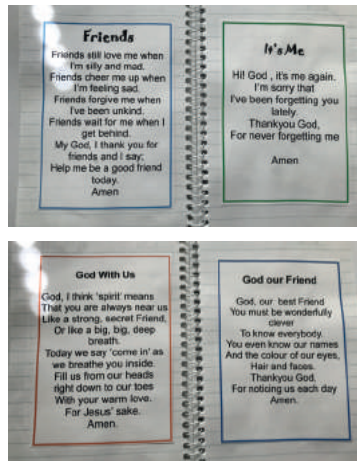 Friends
Friends still love me when
I'm silly and mad.
Friends cheer me up when
I'm feeling sad.
Friends forgive me when
I've been unkind.
Friends wait for me when I
get behind.
My God, I thank you for
friends and I say;
Help me be a good friend
today.
Amen
It's Me
Hi! God , it's me again.
I'm sorry that
I've been forgetting you
lately.
Thankyou God,
For never forgetting me
Amen
God With Us
God, I think 'spirit' means
That you are always near us
Like a strong, secret Friend,
Or like a big, big, deep
breath.
Today we say 'come in' as
we breathe you inside.
Fill us from our heads
right down to our toes
With your warm love.
For Jesus' sake.
Amen.
God our Friend
God, our best Friend
You must be wonderfully
clever
To know everybody.
You even know our names
And the colour of our eyes,
Hair and faces.
Thankyou God,
For noticing us each day
Amen.